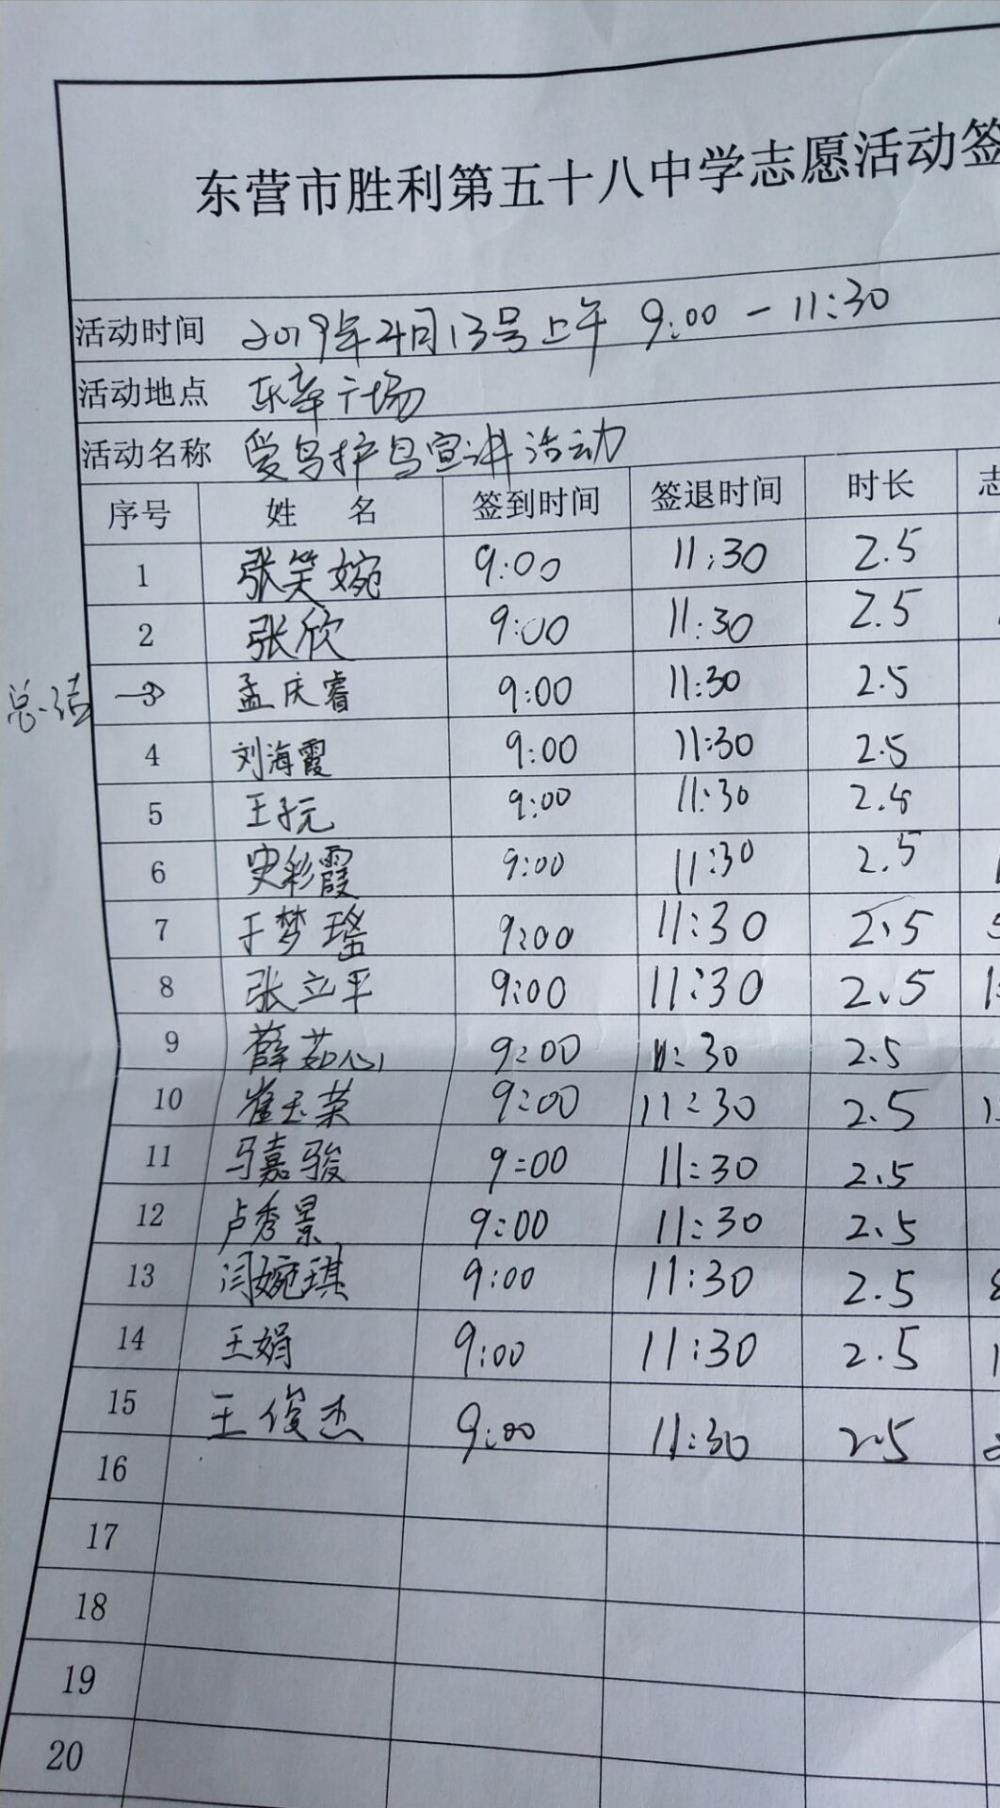 东营市胜利第五十八中学志愿活动签
活动时间 2019年4月13号上午 9:00 - 11:30
活动地点 东辛广场
活动名称 爱鸟护鸟宣讲活动
序号 姓 名 签到时间 签退时间 时长 志
1 张笑婉 9:00 11:30 2.5
2 张欣 9:00 11:30 2.5
总结 3 孟庆睿 9:00 11:30 2.5
4 刘海霞 9:00 11:30 2.5
5 王子元 9:00 11:30 2.5
6 史彩霞 9:00 11:30 2.5
7 于梦瑶 9:00 11:30 2.5
8 张立平 9:00 11:30 2.5
9 薛茹心 9:00 11:30 2.5
10 崔玉荣 9:00 11:30 2.5
11 马嘉骏 9:00 11:30 2.5
12 卢秀景 9:00 11:30 2.5
13 闫婉琪 9:00 11:30 2.5
14 王娟 9:00 11:30 2.5
15 王俊杰 9:00 11:30 2.5
16
17
18
19
20